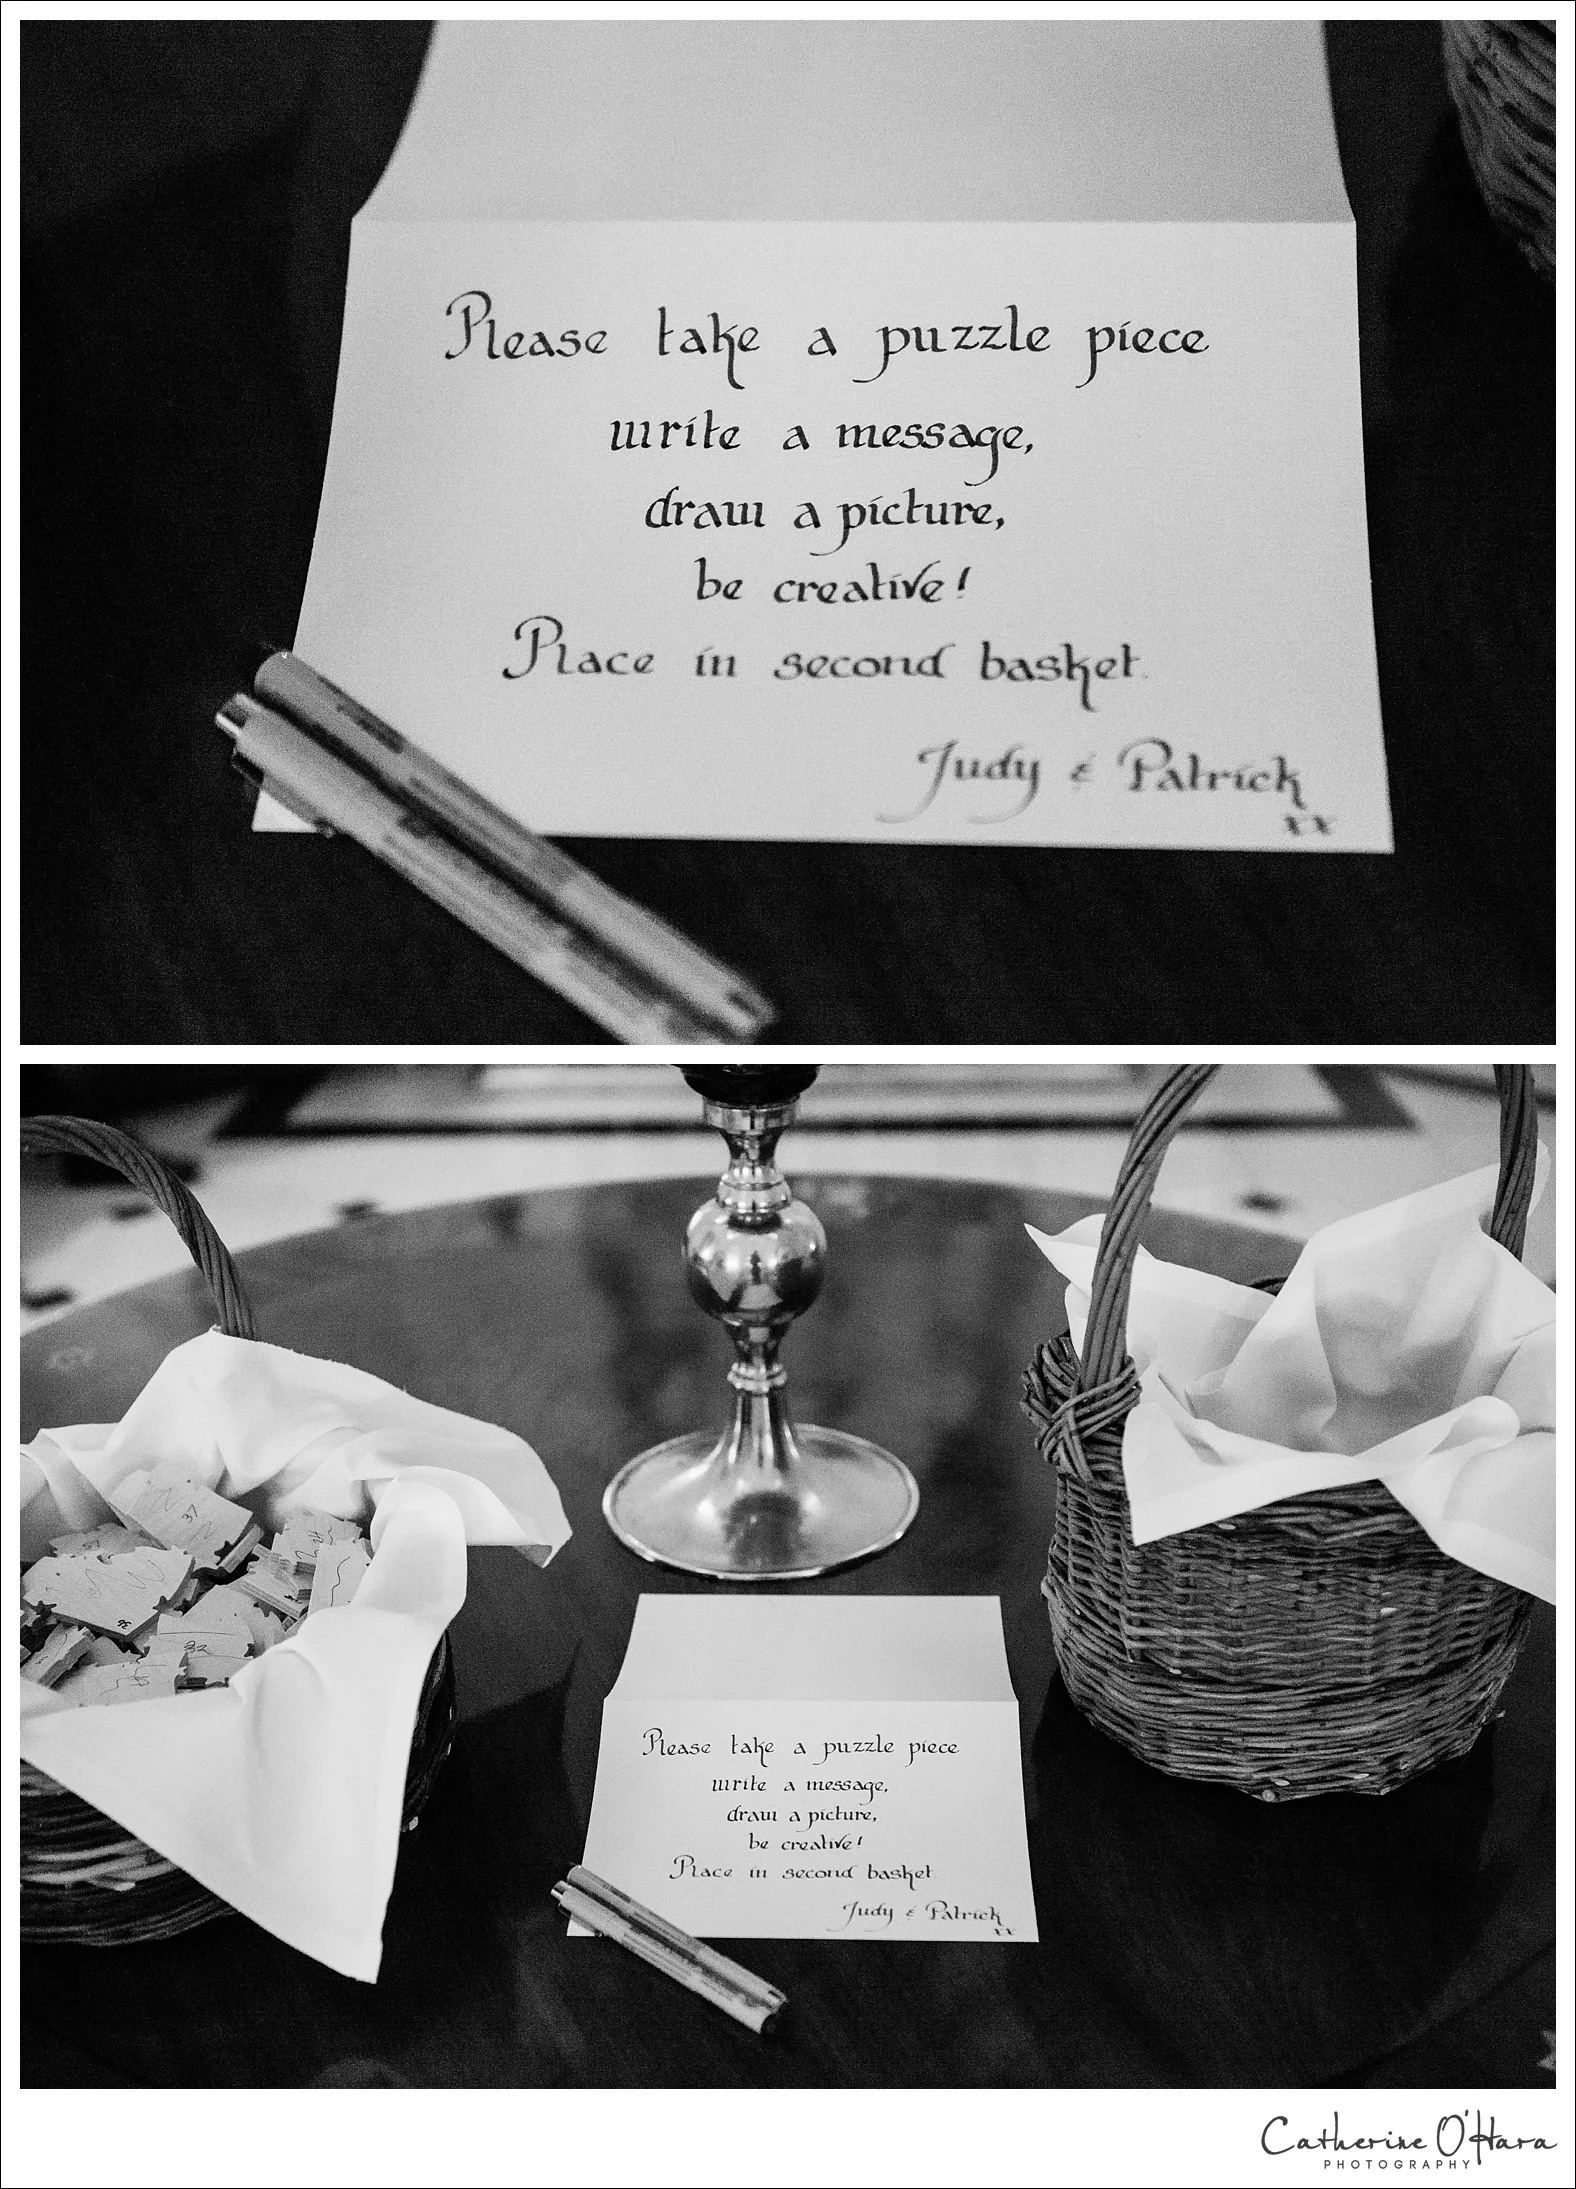 Please take a puzzle piece
write a message,
draw a picture,
be creative!
Place in second basket.
Judy & Patrick
xx
37
36
32
Please take a puzzle piece
write a message,
draw a picture,
be creative!
Place in second basket
Judy & Patrick
xx
Catherine O'Hara
PHOTOGRAPHY